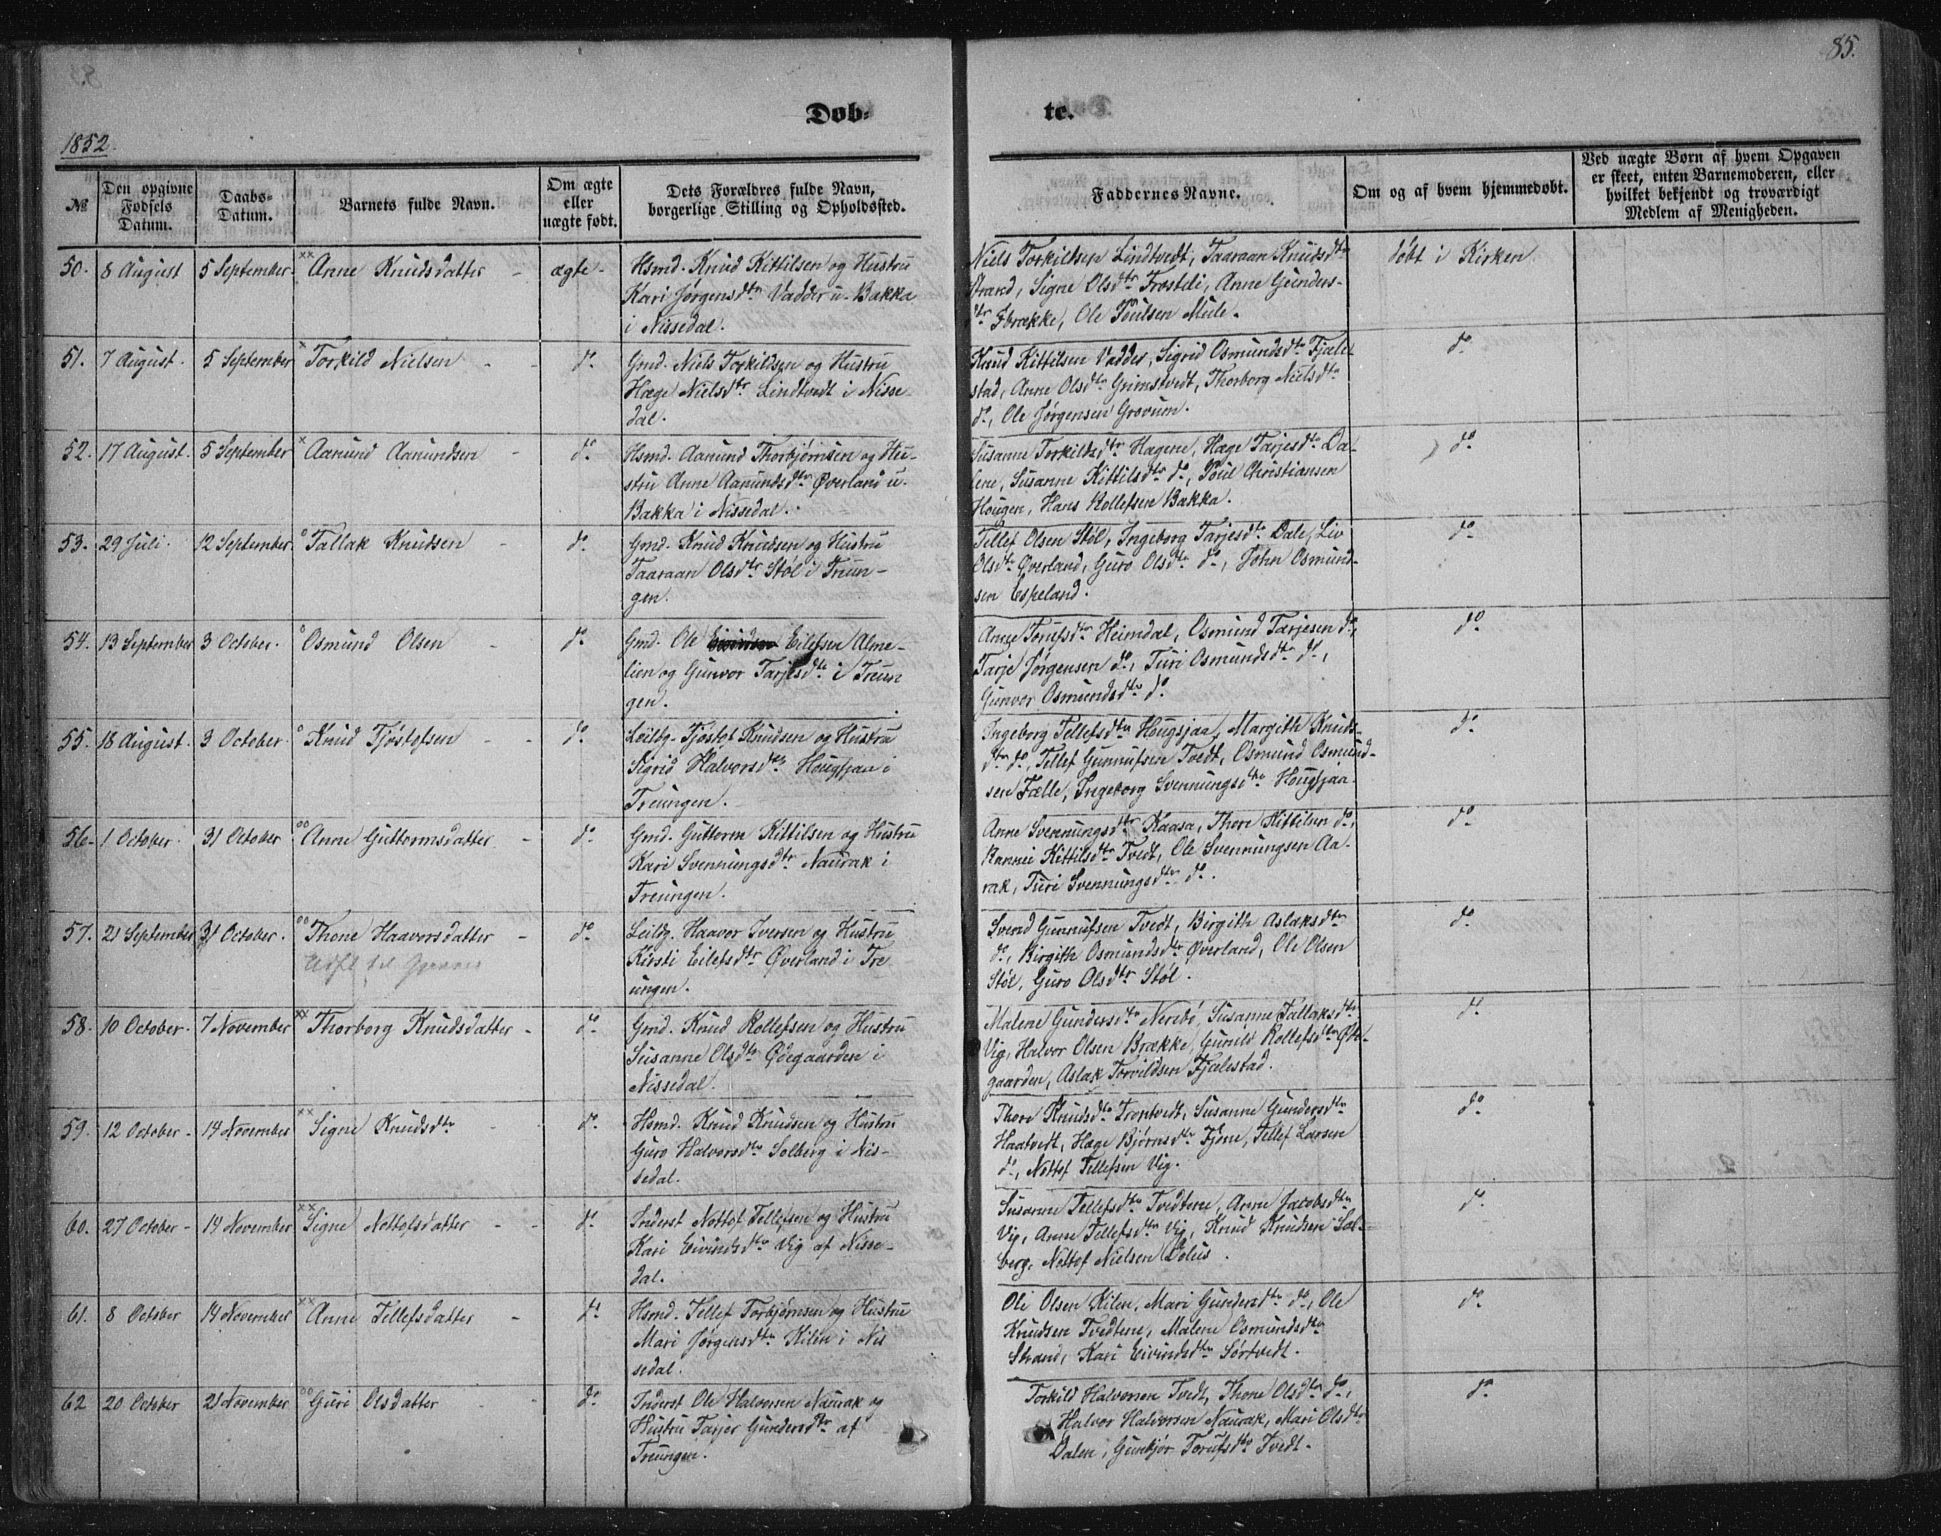 85.
Døb-
te.
1852.
№
Den opgivne Fødsels Datum.
Daabs-Datum.
Barnets fulde Navn.
Om ægte eller uægte født.
Dets Forældres fulde Navn, borgerlige Stilling og Opholdssted.
Faddernes Navne.
Om og af hvem hjemmedøbt.
Ved uægte Børn af hvem Opgaven er skeet, enten Barnemoderen, eller hvilket bekjendt og troværdigt Medlem af Menigheden.
50. 8 August 5 September xx Anne Knudsdatter - ægte-
Hsmd. Knud Kittilsen og Hustru
Kari Jørgensdtr Vadder u. Bakka
i Nissedal.
Niels Torkildsen Lindtvedt, Taaraan Knudsdtr
Strand, Signe Olsdtr Frostli, Anne Gunders-
dtr Brække, Ole Poulsen Mule.
døbt i Kirken
51. 7 August. 5 September x Torkild Nielsen - - do
Gmd. Niels Torkildsen og Hustru
Hæge Nielsdtr Lindtvedt i Nisse-
dal.
Knud Kittilsen Vadder, Sigrid Osmundsdtr Fjæle-
stad, Anne Olsdtr Grimstvedt, Thorborg Nielsdtr
do, Ole Jørgensen Grovum.
do
52. 17 August. 5 September x Aanund Aanundsen - do
Hsmd. Aanund Thorbjørnsen og Hu-
stru Anne Aanundsdtr Øverland u.
Bakka i Nissedal.
Susanne Torkildsdtr Hagene, Hæge Tarjesdtr Da-
lene, Susanne Kittilsdtr do, Poul Christiansen
Hougen, Hans Rollefsen Bakka.
do
53. 29 Juli. 12 September. o Tallak Knudsen - do
Gmd. Knud Knudsen og Hustru
Taaraan Olsdtr Støl i Treun-
gen.
Tellef Olsen Støl, Ingeborg Tarjesdtr Dale, Liv
Olsdtr Øverland, Guro Olsdtr do, John Osmund-
sen Espeland.
do
54. 13 September 3 October. o Osmund Olsen - do
Gmd. Ole Eilefsen Alme-
lien og Gunvor Tarjesdtr i Treun
gen.
Anne Torufsdtr Heimdal, Osmund Tarjesen do,
Tarje Jørgensen do, Turi Osmundsdtr do,
Gunvor Osmundsdtr do
do
55. 18 August. 3 October. o Knud Tjøstofsen - - do
Leilbg. Tjøstof Knudsen og Hustru
Sigrid Halvorsdtr Hougsjaa i
Treungen.
Ingeborg Tellefsdtr Hougsjaa, Margith Knuds-
dtr do, Tellef Gunnufsen Tvedt, Osmund Osmund-
sen Fælle, Ingeborg Svennungsdtr Hougsjaa.
do
56. 1 October. 31 October oo Anne Guttormsdatter - do
Gmd. Guttorm Kittilsen og Hustru
Kari Svennungsdtr Naurak i
Treungen.
Anne Svennungsdtr Kaasa, Thore Kittilsen do,
Rannei Kittilsdtr Tvedt, Ole Svennungsen Aa-
rak, Turi Svennungsdtr do.
do
57. 21 September 31 October. oo Thone Haavorsdatter - do
Udfl. til
Leilbg. Haavor Iversen og Hustru
Kirsti Eilefsdtr Øverland i Tre
ungen.
Svend Gunnufsen Tvedt, Birgith Aslaksdtr
do, Birgith Osmundsdtr Øverland, Ole Olsen
Støl, Guro Olsdtr Støl.
do
58. 10 October. 7 November xx Thorborg Knudsdatter - do
Gmd. Knud Rollefsen og Hustru
Susanne Olsdtr Ødegaarden i
Nissedal.
Malene Gundersdtr Nerebø, Susanne Tallaksdtr
Vig, Halvor Olsen Brække, Gunild Rollefsdtr Øde-
gaarden, Aslak Torvildsen Fjælestad.
do
59. 12 October - 14 November xx Signe Knudsdtr - do
Hsmd. Knud Knudsen og Hustru
Guro Halvorsdtr Solberg i Nis-
sedal.
Thore Knudsdtr Trontvedt, Susanne Gundersdtr
Haatvedt, Hæge Bjørnsdtr Fjone, Tellef Larsen
do, Nottof Tellefsen Vig.
do
60. 27 October - 14 November xx Signe Nottofsdatter - - do
Inderst Nottof Tellefsen og Hustru
Kari Eivindsdtr Vig af Nisse-
dal.
Susanne Tellefsdtr Tvedtene, Anne Jacobsdtr
Vig, Anne Tellefsdtr Vig, Knud Knudsen Sol-
berg, Nottof Nielsen
do
61. 8 October 14 November xx Anne Tellefsdatter - do
Hsmd. Tellef Torbjørnsen og Hustru
Mari Jørgensdtr Kilen i Nis
sedal.
Ole Olsen Kilen, Mari Gundersdtr do, Ole
Knudsen Tvedtene, Malene Osmundsdtr
Strand, Kari Eivindsdtr Sørtvedt.
do
62 20 October 21 November oo Guri Olsdatter - - do
Inderst Ole Halvorsen Naurak og
Hustru Tarjer Gundersdtr af
Treungen.
Torkild Halvorsen Tvedt, Thone Olsdtr do,
Halvor Halvorsen Naurak, Mari Olsdtr
Dalen, Gunbjør Torufsdtr Tvedt.
do